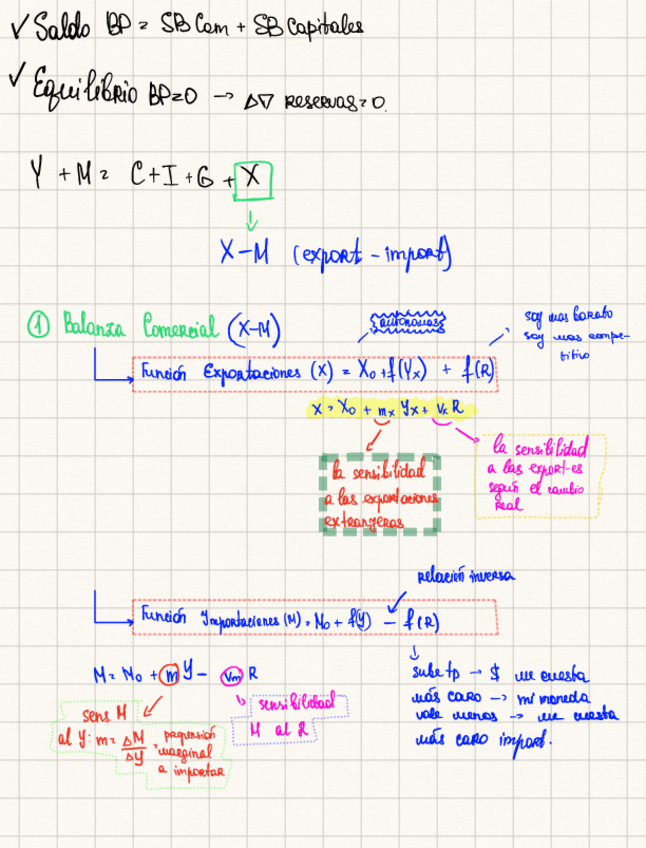 ✓ Saldo BP = SB Com + SB Capitales
✓ Equilibrio BP=0 → Δ∇ reservas=0.
Y + M = C+I+G+X
↓
X-M (export - import)
① Balanza Comercial (X-M)
autónomas
soy mas barato
soy mas compe-
titivo
Función Exportaciones (X) = X₀+f(Yx) + f(R)
X = X₀ + mx Yx + Vx R
la sensibilidad
a las exportaciones
extranjeras
la sensibilidad
a las export-es
según el cambio
real
relación inversa
Función Importaciones (M) = M₀ + f(Y) - f(R)
M = M₀ + m Y - Vm R
sens. M
al Y: m = ΔM/ΔY = propensión
marginal
a importar
sensibilidad
M al R
↓
sube tp → $ me cuesta
más caro → mi moneda
vale menos → me cuesta
más caro import.